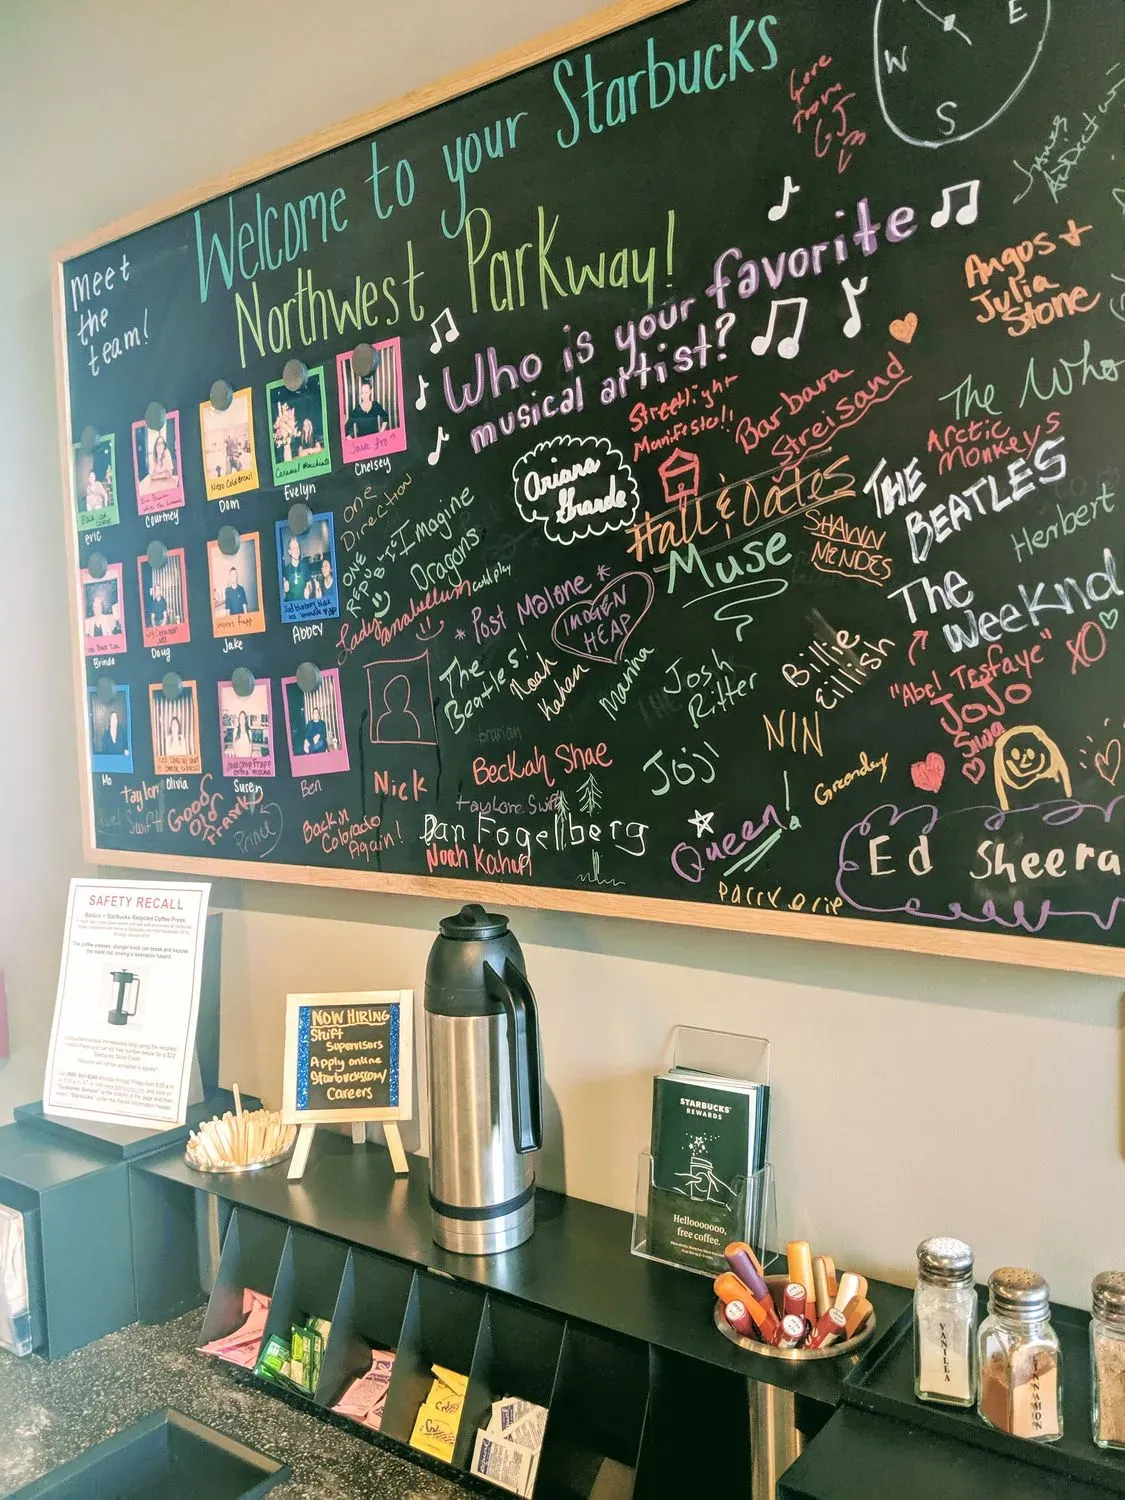 Welcome to your Starbucks
Northwest Parkway!
Meet
the
team!
Who is your favorite
musical artist?
W
E
S
Love
from
GJ
James
Addiction
Angus +
Julia
Stone
The Who
Arctic
Monkeys
THE
BEATLES
Herbert
The
Weeknd
"Abel Tesfaye" XO
JoJo
Siwa
Streetlight
Manifesto!!
Barbara
Streisand
Ariana
Grande
Hall & Oates
SHAWN
MENDES
Muse
One
Direction
ONE
REPUBLIC
Imagine
Dragons
Coldplay
* Post Malone *
IMOGEN
HEAP
Lady
The
Beatles!
Noah
Kahan
Marina
Josh
Ritter
Billie
Eillish
NIN
Joji
Greenday
Beckah Shae
Taylore Swift
Dan Fogelberg
Noah Kahan
Queen!
Ed Sheera
Nick
Back in
Colorado
Again!
Taylor
Swift
Good
Old
Frank
Prince
eric
Courtney
Nitro Cold Brew!
Dom
Caramel Macchiato
Evelyn
Java Frap
Chelsey
Brinda
Doug
Jake
Abbey
Mo
Olivia
Suren
Ben
SAFETY RECALL
Bodum + Starbucks Recycled Coffee Press
The coffee presses' plunger knob can break and expose
the metal rod, posing a laceration hazard.
NOW HIRING
Shift
Supervisors
Apply online
Starbucks.com/
Careers
STARBUCKS
REWARDS
Hellooooooo,
free coffee.
VANILLA
CINNAMON